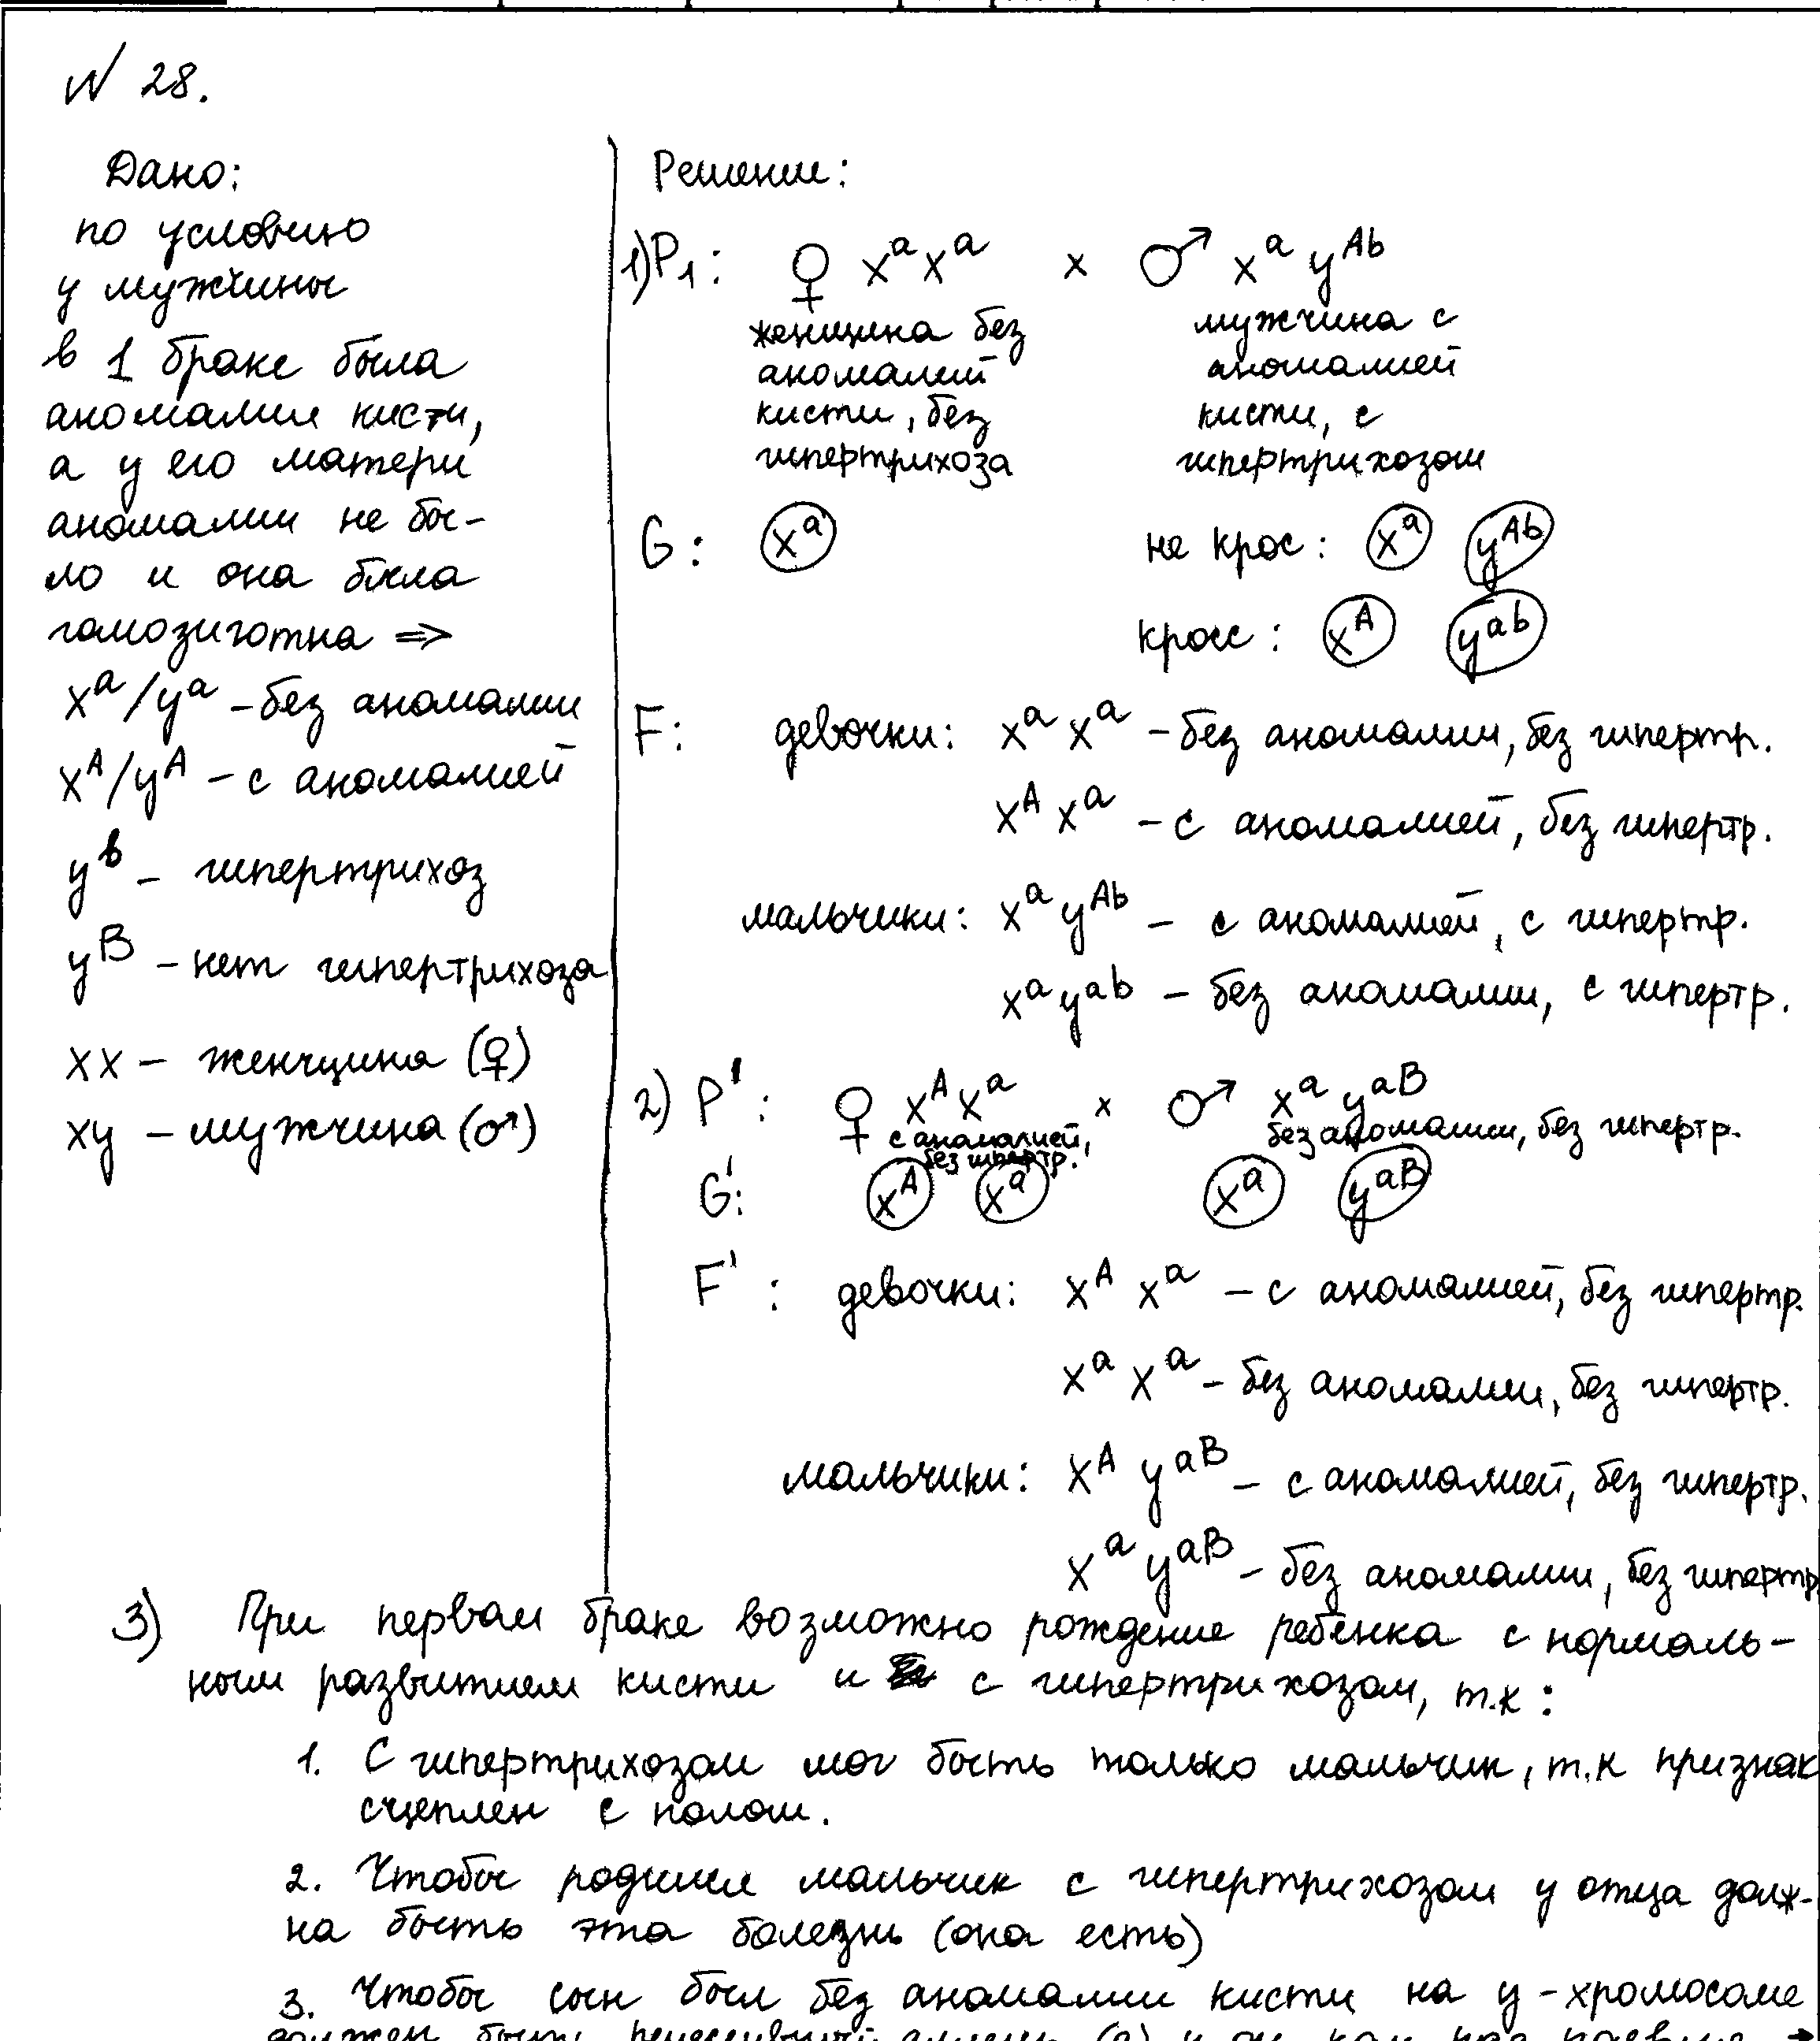 N 28.
Дано:
по условию
у мужчины
в 1 браке была
аномалии кисти,
а у его матери
аномалии не бы-
ло и она была
гомозиготна ⇒
xᵃ/yᵃ - без аномалии
xᴬ/yᴬ - с аномалией
yᵇ - гипертрихоз
yᴮ - нет гипертрихоза
xx - женщина (♀)
xy - мужчина (♂)
Решение:
1) P₁: ♀ xᵃxᵃ × ♂ xᵃyᴬᵇ
женщина без аномалий кисти, без гипертрихоза
мужчина с аномалией кисти, с гипертрихозом
G: xᵃ не крос: xᵃ yᴬᵇ
кросс: xᴬ yᵃᵇ
F: девочки: xᵃxᵃ - без аномалии, без гипертр.
xᴬxᵃ - с аномалией, без гипертр.
мальчики: xᵃyᴬᵇ - с аномалией, с гипертр.
xᵃyᵃᵇ - без аномалии, с гипертр.
2) P': ♀ xᴬxᵃ × ♂ xᵃyᵃᴮ
с аномалией, без гипертр.
без аномалии, без гипертр.
G': xᴬ xᵃ xᵃ yᵃᴮ
F': девочки: xᴬxᵃ - с аномалией, без гипертр.
xᵃxᵃ - без аномалии, без гипертр.
мальчики: xᴬyᵃᴮ - с аномалией, без гипертр.
xᵃyᵃᴮ - без аномалии, без гипертр
3) При первом браке возможно рождение ребёнка с нормаль-
ным развитием кисти и с гипертрихозом, т.к:
1. С гипертрихозом мог быть только мальчик, т.к признак
сцеплен с полом.
2. Чтобы родился мальчик с гипертрихозом у отца долж-
на быть эта болезнь (она есть)
3. Чтобы сын был без аномалии кисти на y-хромосоме
должен быть